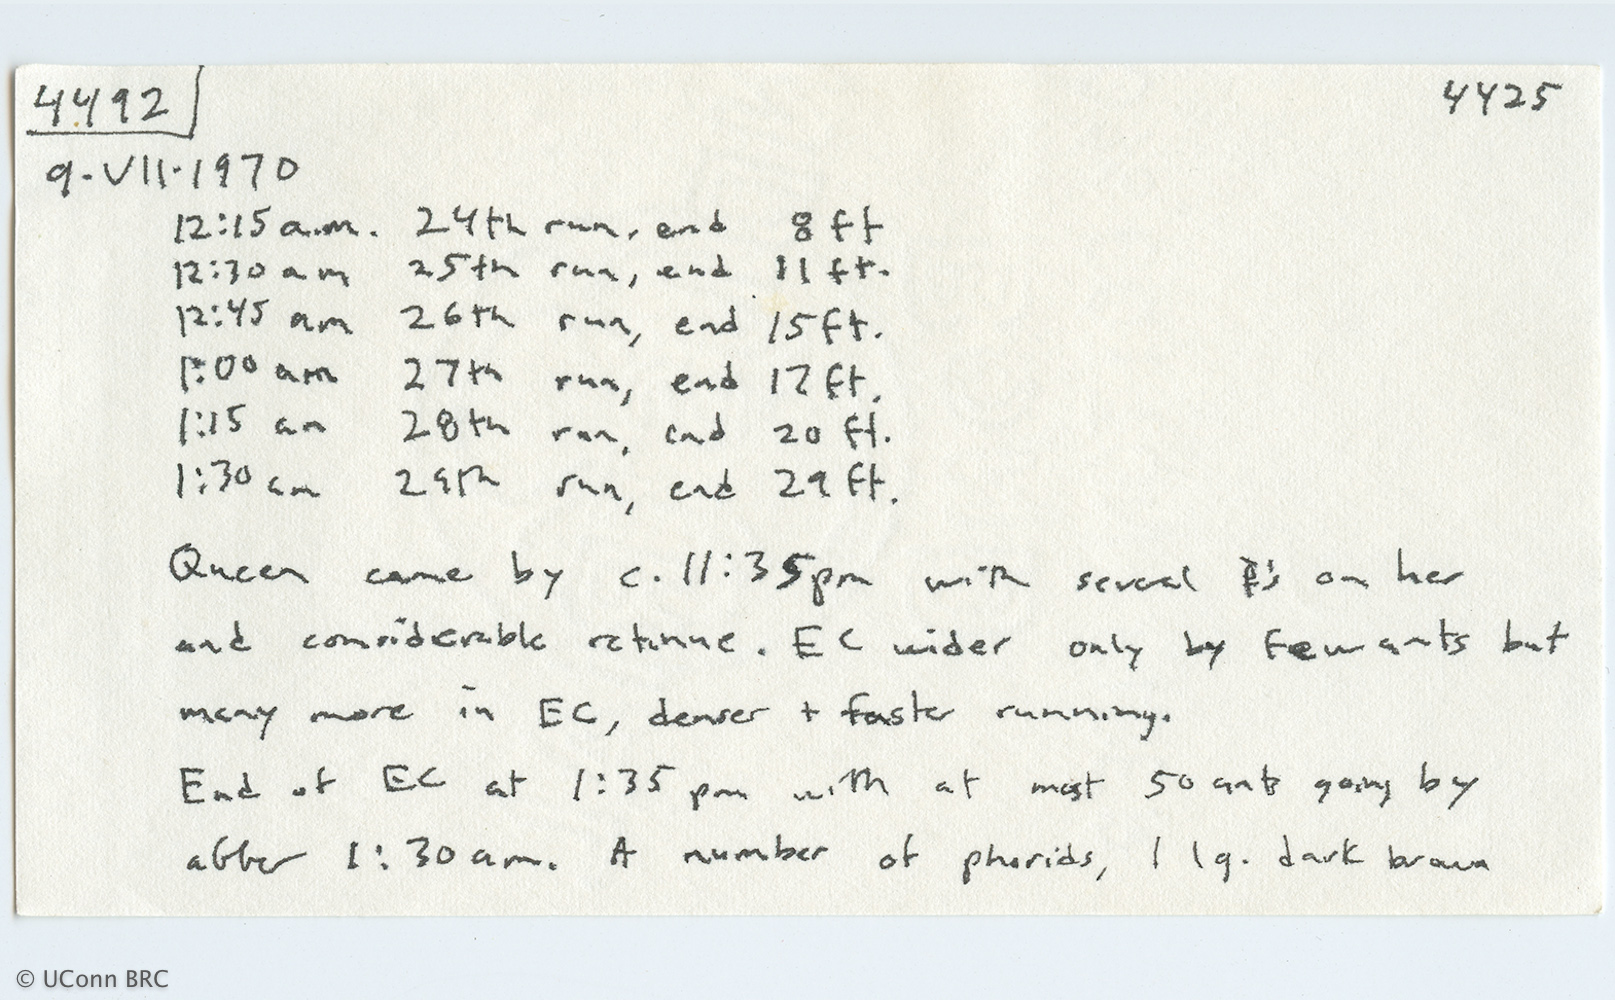 4492 4425
9-VII-1970
12:15 a.m. 24th run, end 8 ft
12:30 am 25th run, end 11 ft.
12:45 am 26th run, end 15 ft.
1:00 am 27th run, end 17 ft.
1:15 am 28th run, end 20 ft.
1:30 am 29th run, end 29 ft.
Queen came by c. 11:35pm with several on her
and considerable retinue. EC wider only by few ants but
many more in EC, denser + faster running.
End of EC at 1:35 pm with at most 50 ants going by
after 1:30 am. A number of phorids, 1 lg. dark brown
© UConn BRC